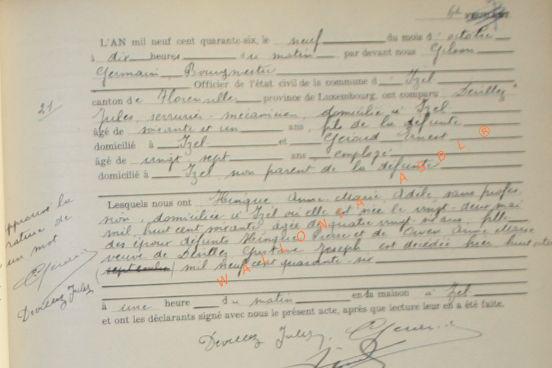 6e FEUILLET
L'AN mil neuf cent quarante-six, le neuf du mois d'octobre
à dix heures du matin, par devant nous Gilson
Germain Bourgmestre
Officier de l'état civil de la commune d'Izel
canton de Florenville province de Luxembourg, ont comparu Devillez
21
Jules, serrurier mécanicien, domicilié à Izel
âgé de soixante et un ans, fils de la défunte
domicilié à Izel et Géroud Ernest
âgé de vingt sept ans employé
domicilié à Izel, non parent de la défunte
Lesquels nous ont Hinque Anne Marie Adèle sans profes
sion, domiciliée à Izel où elle est née le vingt-deux mai
mil huit cent soixante, agée de quatre vingt six ans, fille
des époux défunts Pierre et de Anne Marie
veuve de Devillez Gustave Joseph est décédée hier huit octobre
mil neuf cent quarante six
à une heure du matin en sa maison à Izel
et ont les déclarants signé avec nous le présent acte, après que lecture leur en a été faite.
Approuvé la
rature de
un mot
Devillez Jules
Devillez Jules
WALLONIA ABBL ®